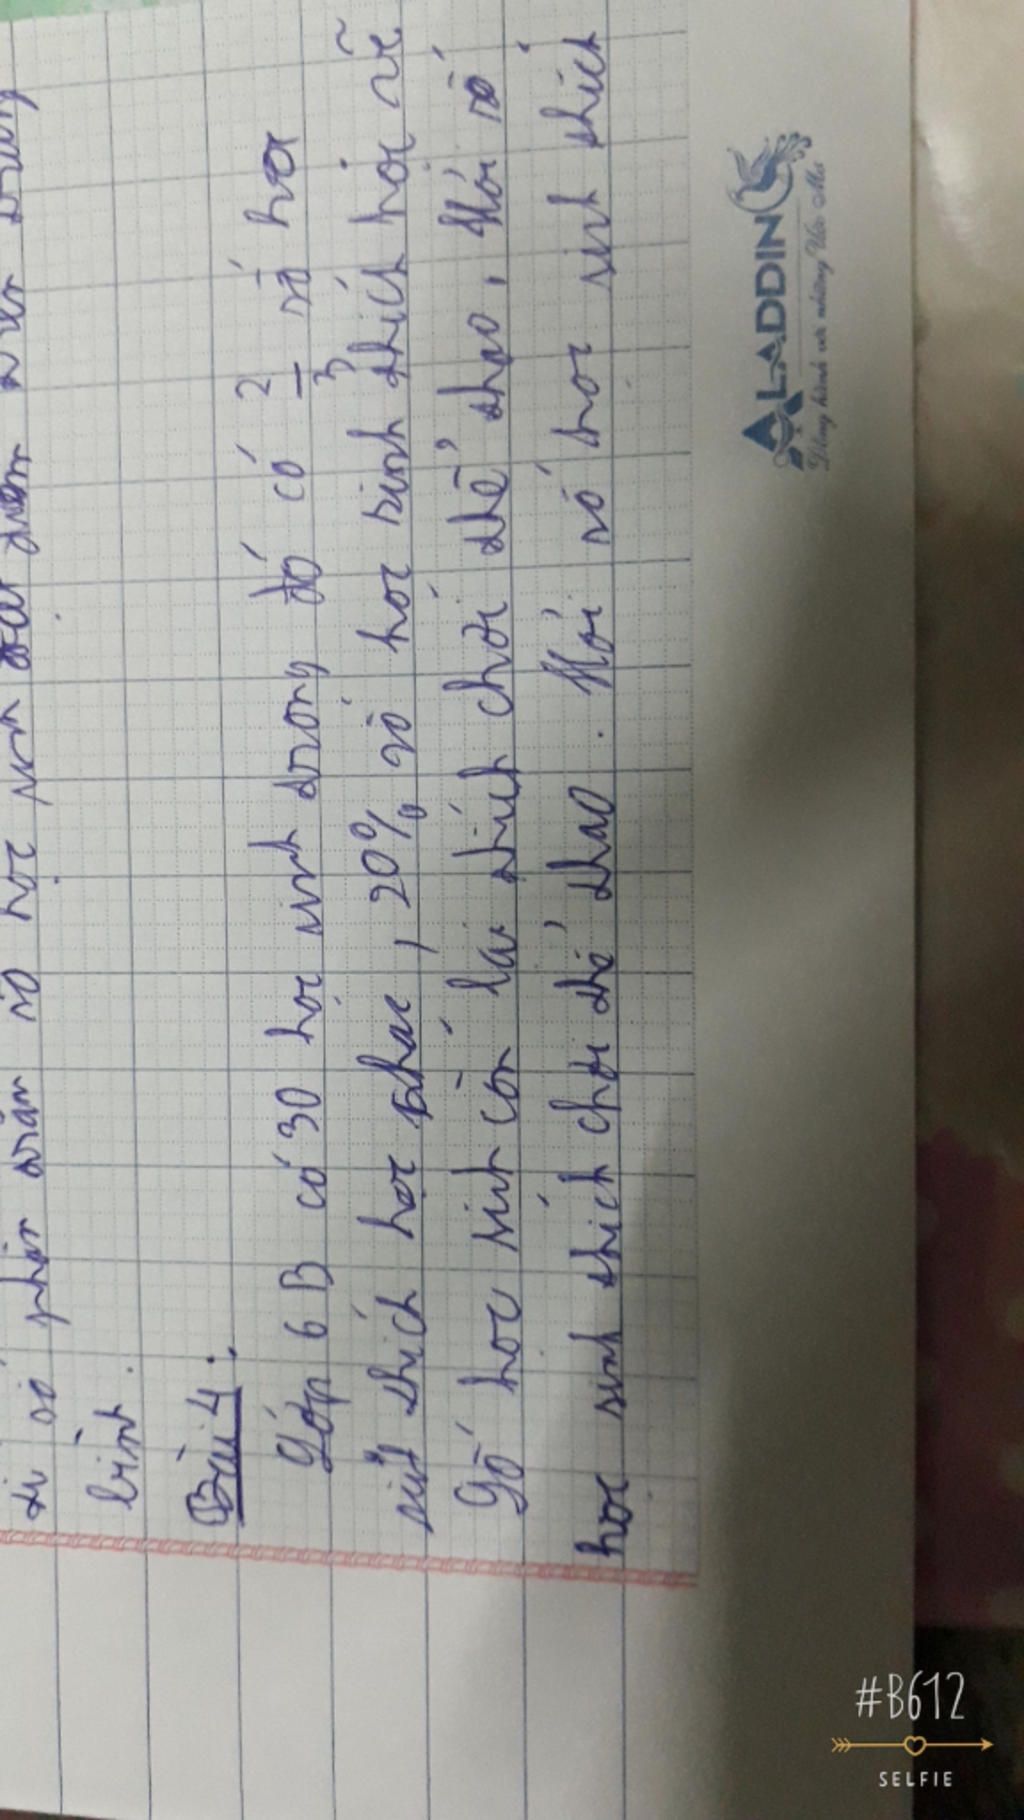 số phần trăm số học sinh đạt điểm trên trung
bình.
Bài 4:
Lớp 6B có 30 học sinh trong đó có 2/3 số học
sinh thích học khác, 20% số học sinh thích học vẽ
Số học sinh còn lại thích chơi thể thao, Hỏi số
học sinh thích chơi thể thao. Hỏi số học sinh thích
ALADDIN
Đồng hành với những Ước Mơ
#B612
SELFIE